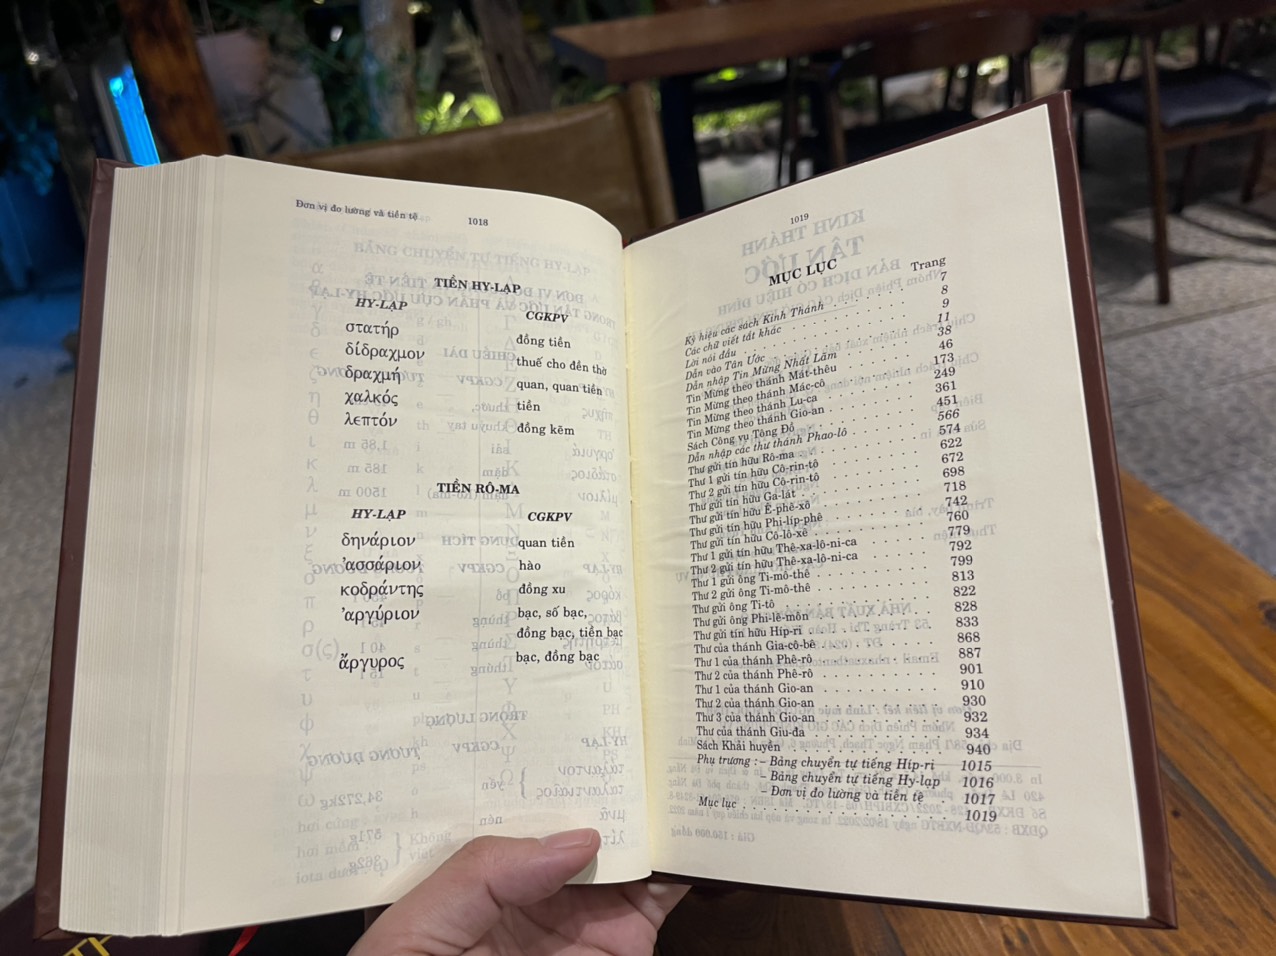 Đơn vị đo lường và tiền tệ 1018
TIỀN HY-LẠP
HY-LẠP CGKPV
στατήρ đồng tiền
δίδραχμον thuế cho đền thờ
δραχμή quan, quan tiền
χαλκός tiền
λεπτόν đồng kẽm
TIỀN RÔ-MA
HY-LẠP CGKPV
δηνάριον quan tiền
ʼασσάριον hào
κοδράντης đồng xu
ʼαργύριον bạc, số bạc,
đồng bạc, tiền bạc
ἄργυρος bạc, đồng bạc
1019
MỤC LỤC
Trang
Ký hiệu các sách Kinh Thánh . . . . . . . . 7
Các chữ viết tắt khác . . . . . . . . 8
Lời nói đầu . . . . . . . . 9
Dẫn vào Tân Ước . . . . . . . . 11
Dẫn nhập Tin Mừng Nhất Lãm . . . . . . . . 38
Tin Mừng theo thánh Mát-thêu . . . . . . . . 46
Tin Mừng theo thánh Mác-cô . . . . . . . . 173
Tin Mừng theo thánh Lu-ca . . . . . . . . 249
Tin Mừng theo thánh Gio-an . . . . . . . . 361
Sách Công vụ Tông Đồ . . . . . . . . 451
Dẫn nhập các thư thánh Phao-lô . . . . . . . . 566
Thư gửi tín hữu Rô-ma . . . . . . . . 574
Thư 1 gửi tín hữu Cô-rin-tô . . . . . . . . 622
Thư 2 gửi tín hữu Cô-rin-tô . . . . . . . . 672
Thư gửi tín hữu Ga-lát . . . . . . . . 698
Thư gửi tín hữu Ê-phê-xô . . . . . . . . 718
Thư gửi tín hữu Phi-líp-phê . . . . . . . . 742
Thư gửi tín hữu Cô-lô-xê . . . . . . . . 760
Thư 1 gửi tín hữu Thê-xa-lô-ni-ca . . . . . . . . 779
Thư 2 gửi tín hữu Thê-xa-lô-ni-ca . . . . . . . . 792
Thư 1 gửi ông Ti-mô-thê . . . . . . . . 799
Thư 2 gửi ông Ti-mô-thê . . . . . . . . 813
Thư gửi ông Ti-tô . . . . . . . . 822
Thư gửi ông Phi-lê-môn . . . . . . . . 828
Thư gửi tín hữu Híp-ri . . . . . . . . 833
Thư của thánh Gia-cô-bê . . . . . . . . 868
Thư 1 của thánh Phê-rô . . . . . . . . 887
Thư 2 của thánh Phê-rô . . . . . . . . 901
Thư 1 của thánh Gio-an . . . . . . . . 910
Thư 2 của thánh Gio-an . . . . . . . . 930
Thư 3 của thánh Gio-an . . . . . . . . 932
Thư của thánh Giu-đa . . . . . . . . 934
Sách Khải huyền . . . . . . . . 940
Phụ trương : – Bảng chuyển tự tiếng Híp-ri 1015
– Bảng chuyển tự tiếng Hy-lạp 1016
– Đơn vị đo lường và tiền tệ 1017
Mục lục . . . . . . . . 1019